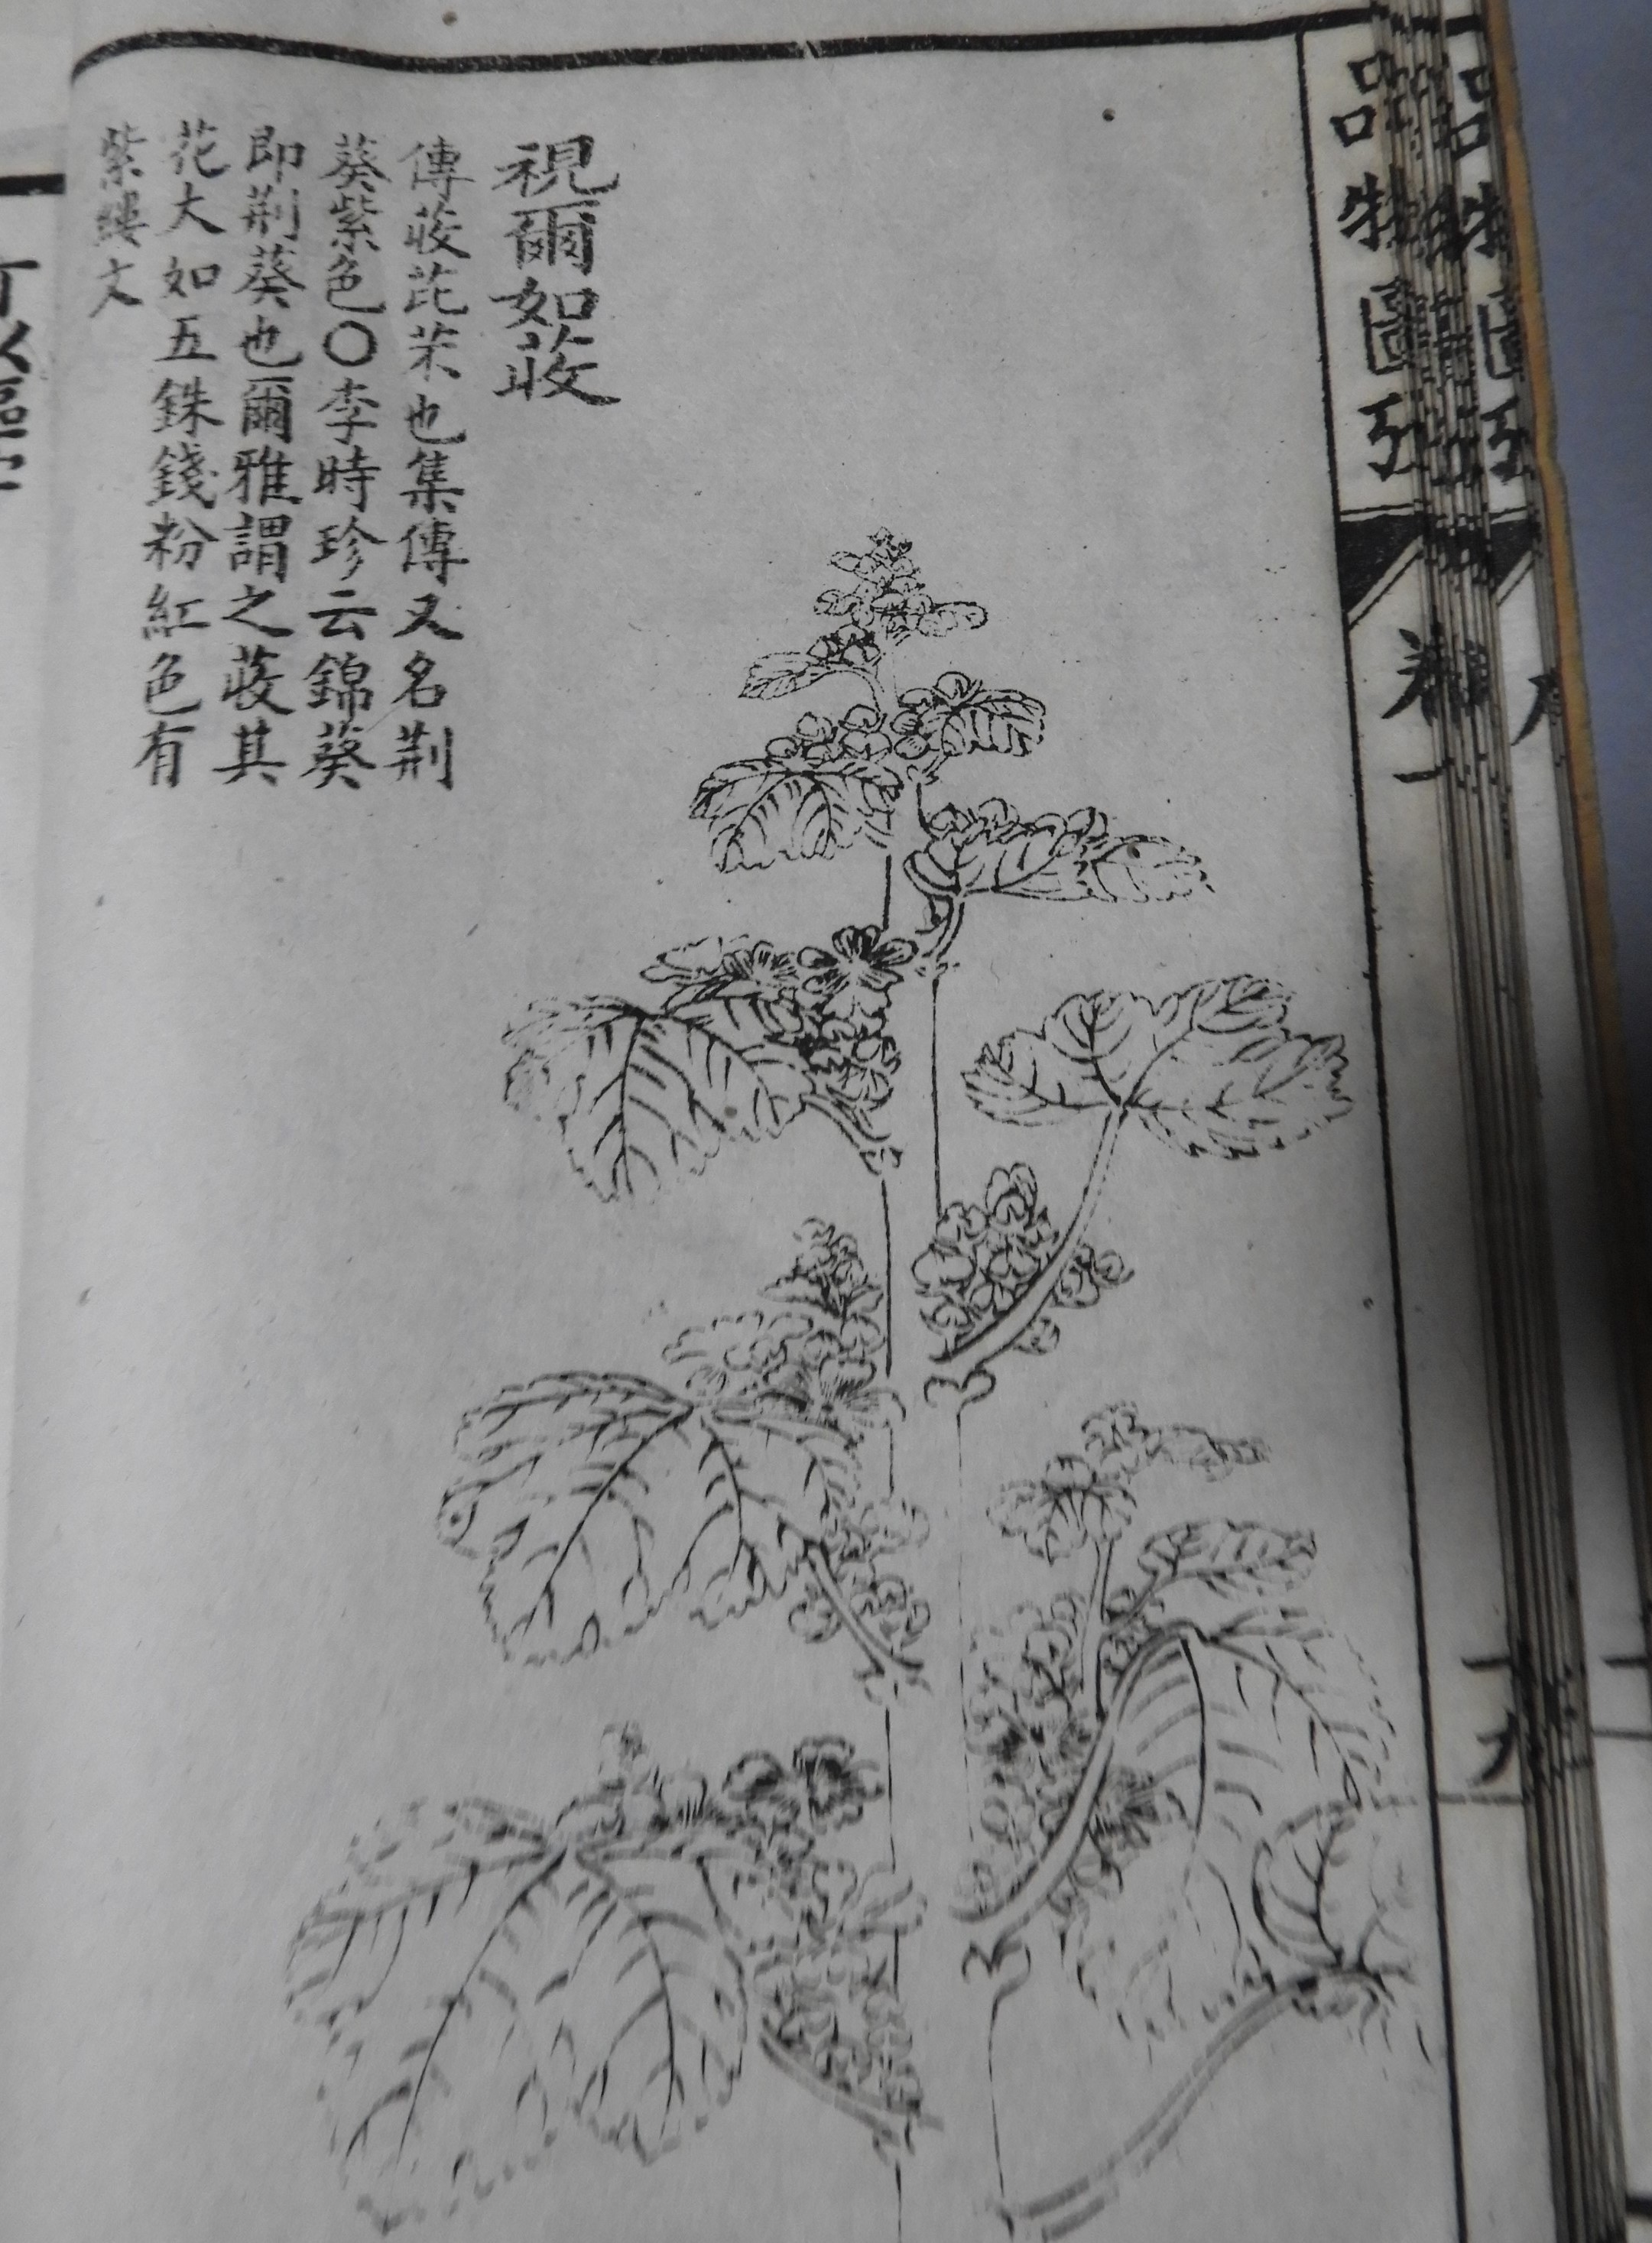 視爾如荍
傳荍芘芣也集傳又名荆
葵紫色〇李時珍云錦葵
即荆葵也爾雅謂之荍其
花大如五銖錢粉紅色有
紫縷文
品物圖攷
卷一